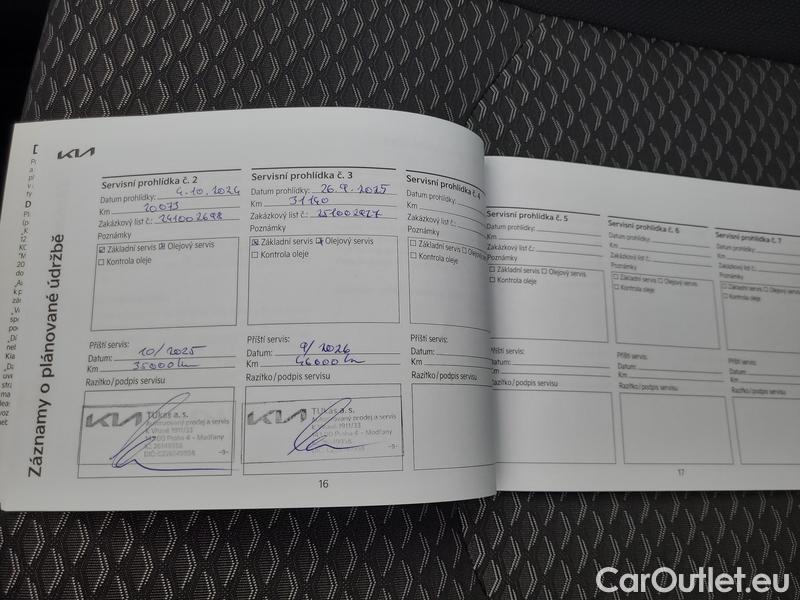 KIA
Záznamy o plánované údržbě
Servisní prohlídka č. 2
Datum prohlídky: 4.10.2024
Km 20073
Zakázkový list č.: 241002698
Poznámky
Základní servis Olejový servis
Kontrola oleje
Příští servis:
Datum: 10/2025
Km 35000 km
Razítko/podpis servisu
KIA TUkas a. s.
Autorizovaný prodej a servis
K Vltavě 1911/33
143 00 Praha 4 - Modřany
-9-
Servisní prohlídka č. 3
Datum prohlídky: 26.9.2025
Km 31140
Zakázkový list č.: 251002927
Poznámky
Základní servis Olejový servis
Kontrola oleje
Příští servis:
Datum: 9/2026
Km 46000 km
Razítko/podpis servisu
KIA TUkas a. s.
Autorizovaný prodej a servis
K Vltavě 1911/33
143 00 Praha 4 - Modřany
-9-
Servisní prohlídka č. 4
Datum prohlídky:
Km
Zakázkový list č.:
Poznámky
Základní servis
Kontrola oleje
Příští servis:
Datum:
Km
Razítko/podpis servisu
16
Servisní prohlídka č. 5
Datum prohlídky:
Km
Zakázkový list č.:
Poznámky
Základní servis Olejový servis
Kontrola oleje
Příští servis:
Datum:
Km
Razítko/podpis servisu
Servisní prohlídka č. 6
Datum prohlídky:
Km
Zakázkový list č.:
Poznámky
Základní servis Olejový servis
Kontrola oleje
Příští servis:
Datum:
Km
Razítko/podpis servisu
Servisní prohlídka č. 7
Datum prohlídky:
Km
Zakázkový list č.:
Poznámky
Základní servis
Kontrola oleje
Příští servis:
Datum:
Km
Razítko/podpis servisu
17
CarOutlet.eu